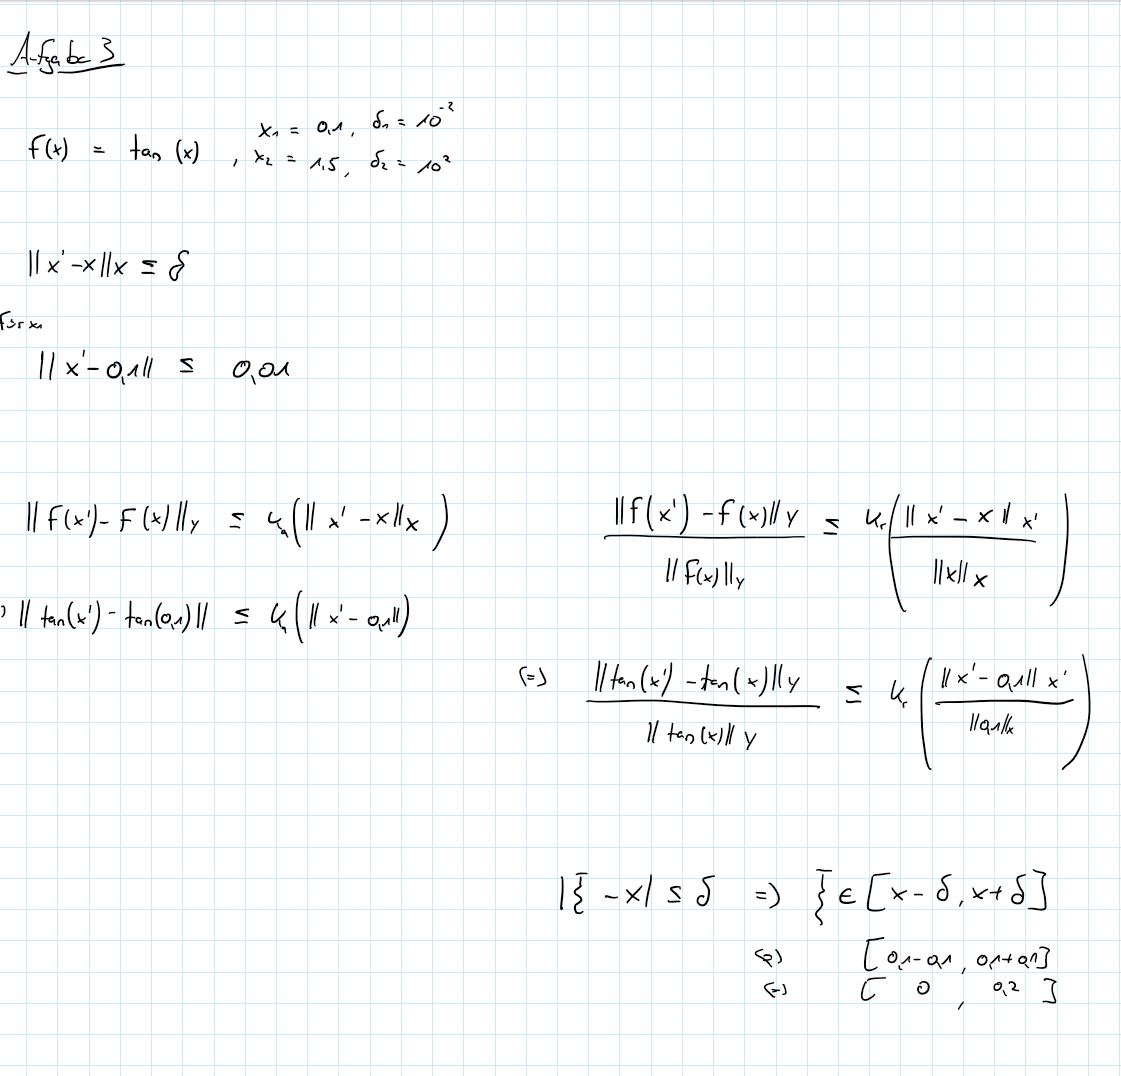 Aufgabe 3
f(x) = tan (x) , x₁ = 0,1, δ₁ = 10⁻²
x₂ = 1,5, δ₂ = 10²
||x'-x||x ≤ δ
für x₁
||x'-0,1|| ≤ 0,01
||f(x')-f(x)||y ≤ kₐ(||x'-x||x)
||tan(x')-tan(0,1)|| ≤ kₐ(||x'-0,1||)
||f(x')-f(x)||y / ||f(x)||y ≤ kᵣ(||x'-x||x' / ||x||x)
(=) ||tan(x')-tan(x)||y / ||tan(x)||y ≤ kᵣ(||x'-0,1||x' / ||0,1||x)
|ξ-x| ≤ δ =) ξ ∈ [x-δ, x+δ]
(=) [0,1-0,1, 0,1+0,1]
(=) [0, 0,2]